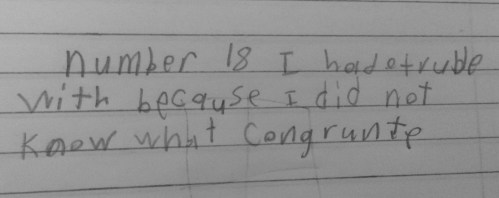 number 18 I hadetruble
with because I did not
know what congrunte